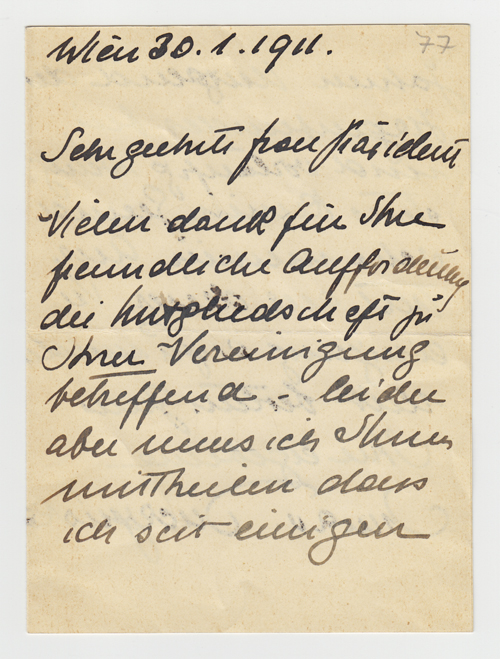 77
Wien 30.1.1911.
Sehr geehrte frau Präsident
Vielen dank für Ihre
freundliche Aufforderung
die Mitgliedschaft zu
Ihrer Vereinigung
betreffend - leider
aber muss ich Ihnen
mittheilen dass
ich seit einigen